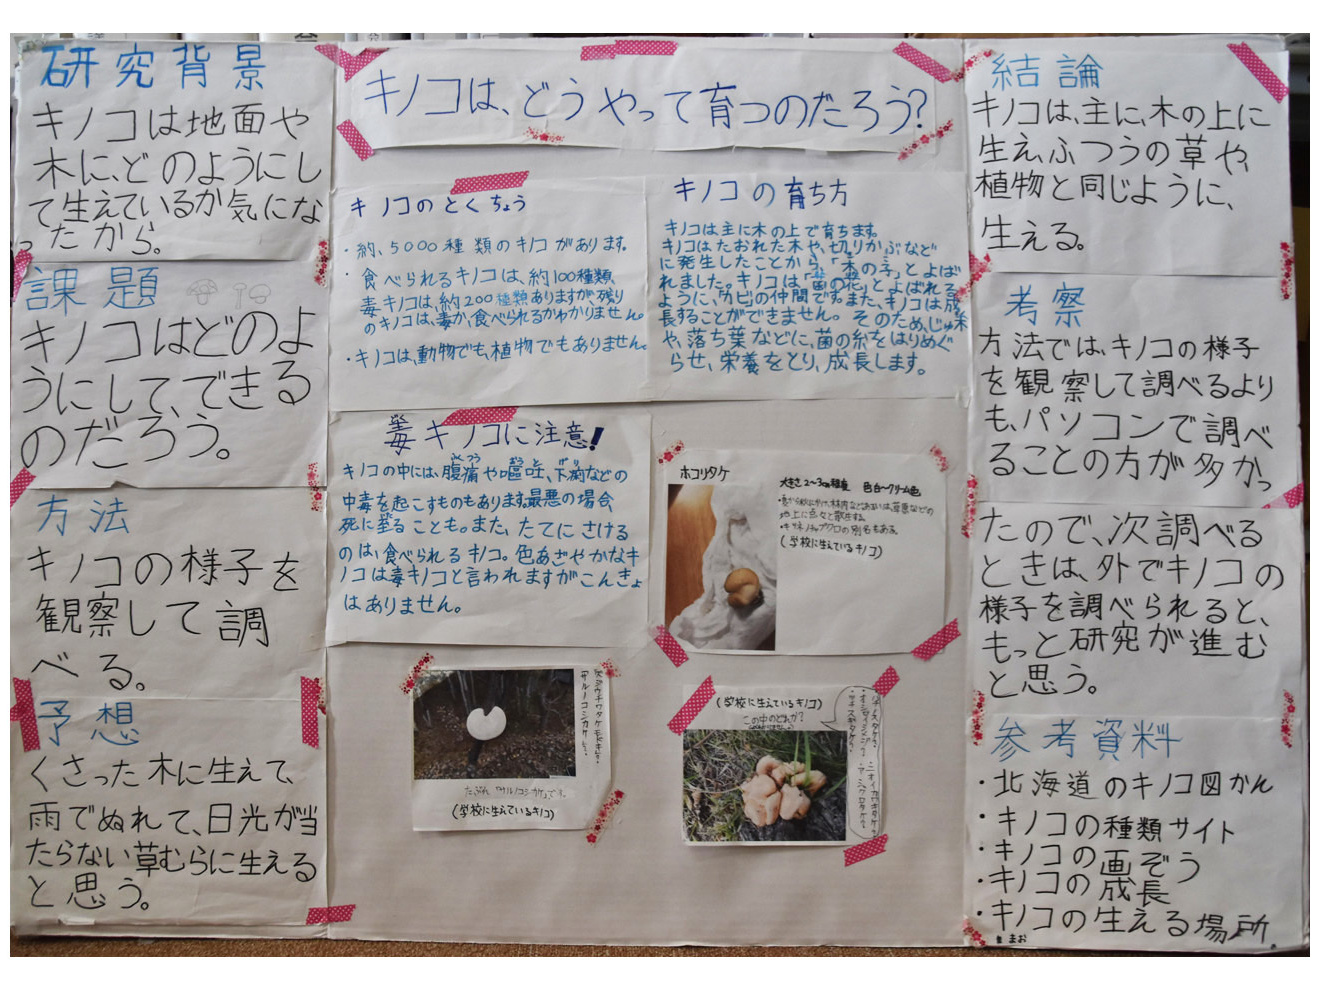 研究背景
キノコは地面や
木に、どのようにし
て生えているか気にな
ったから。
課題
キノコはどのよ
うにして、できる
のだろう。
方法
キノコの様子を
観察して調
べる。
予想
くさった木に生えて、
雨でぬれて、日光が当
たらない草むらに生える
と思う。
キノコは、どうやって育つのだろう?
キノコのとくちょう
・約、5000種類のキノコがあります。
・食べられるキノコは、約100種類、
毒キノコは、約200種類ありますが残り
のキノコは、毒か、食べられるかわかりません。
・キノコは、動物でも、植物でもありません。
キノコの育ち方
キノコは主に木の上で育ちます。
キノコはたおれた木や、切りかぶなど
に発生したことから、「木の子」とよば
れました。キノコは「菌の花」とよばれる
ように、カビの仲間です。また、キノコは成
長することができません。そのため、じゅ木
や、落ち葉などに、菌の糸をはりめぐ
らせ、栄養をとり、成長します。
毒キノコに注意!
キノコの中には、腹痛や嘔吐、下痢などの
中毒を起こすものもあります。最悪の場合、
死に至ることも。また、たてにさける
のは、食べられるキノコ。色あざやかなキ
ノコは毒キノコと言われますがこんきょ
はありません。
ホコリタケ
大きさ2~3cm程度 色白~クリーム色
地上に点々と散生する。
・キツネノチャブクロの別名もある。
(学校に生えているキノコ)
たぶん「サルノコシカケ」です。
(学校に生えているキノコ)
(学校に生えているキノコ)
この中のどれか?
結論
キノコは、主に、木の上に
生え、ふつうの草や、
植物と同じように、
生える。
考察
方法では、キノコの様子
を観察して調べるより
も、パソコンで調べ
ることの方が多かっ
たので、次調べる
ときは、外でキノコの
様子を調べられると、
もっと研究が進む
と思う。
参考資料
・北海道のキノコ図かん
・キノコの種類サイト
・キノコの画ぞう
・キノコの成長
・キノコの生える場所。
まお